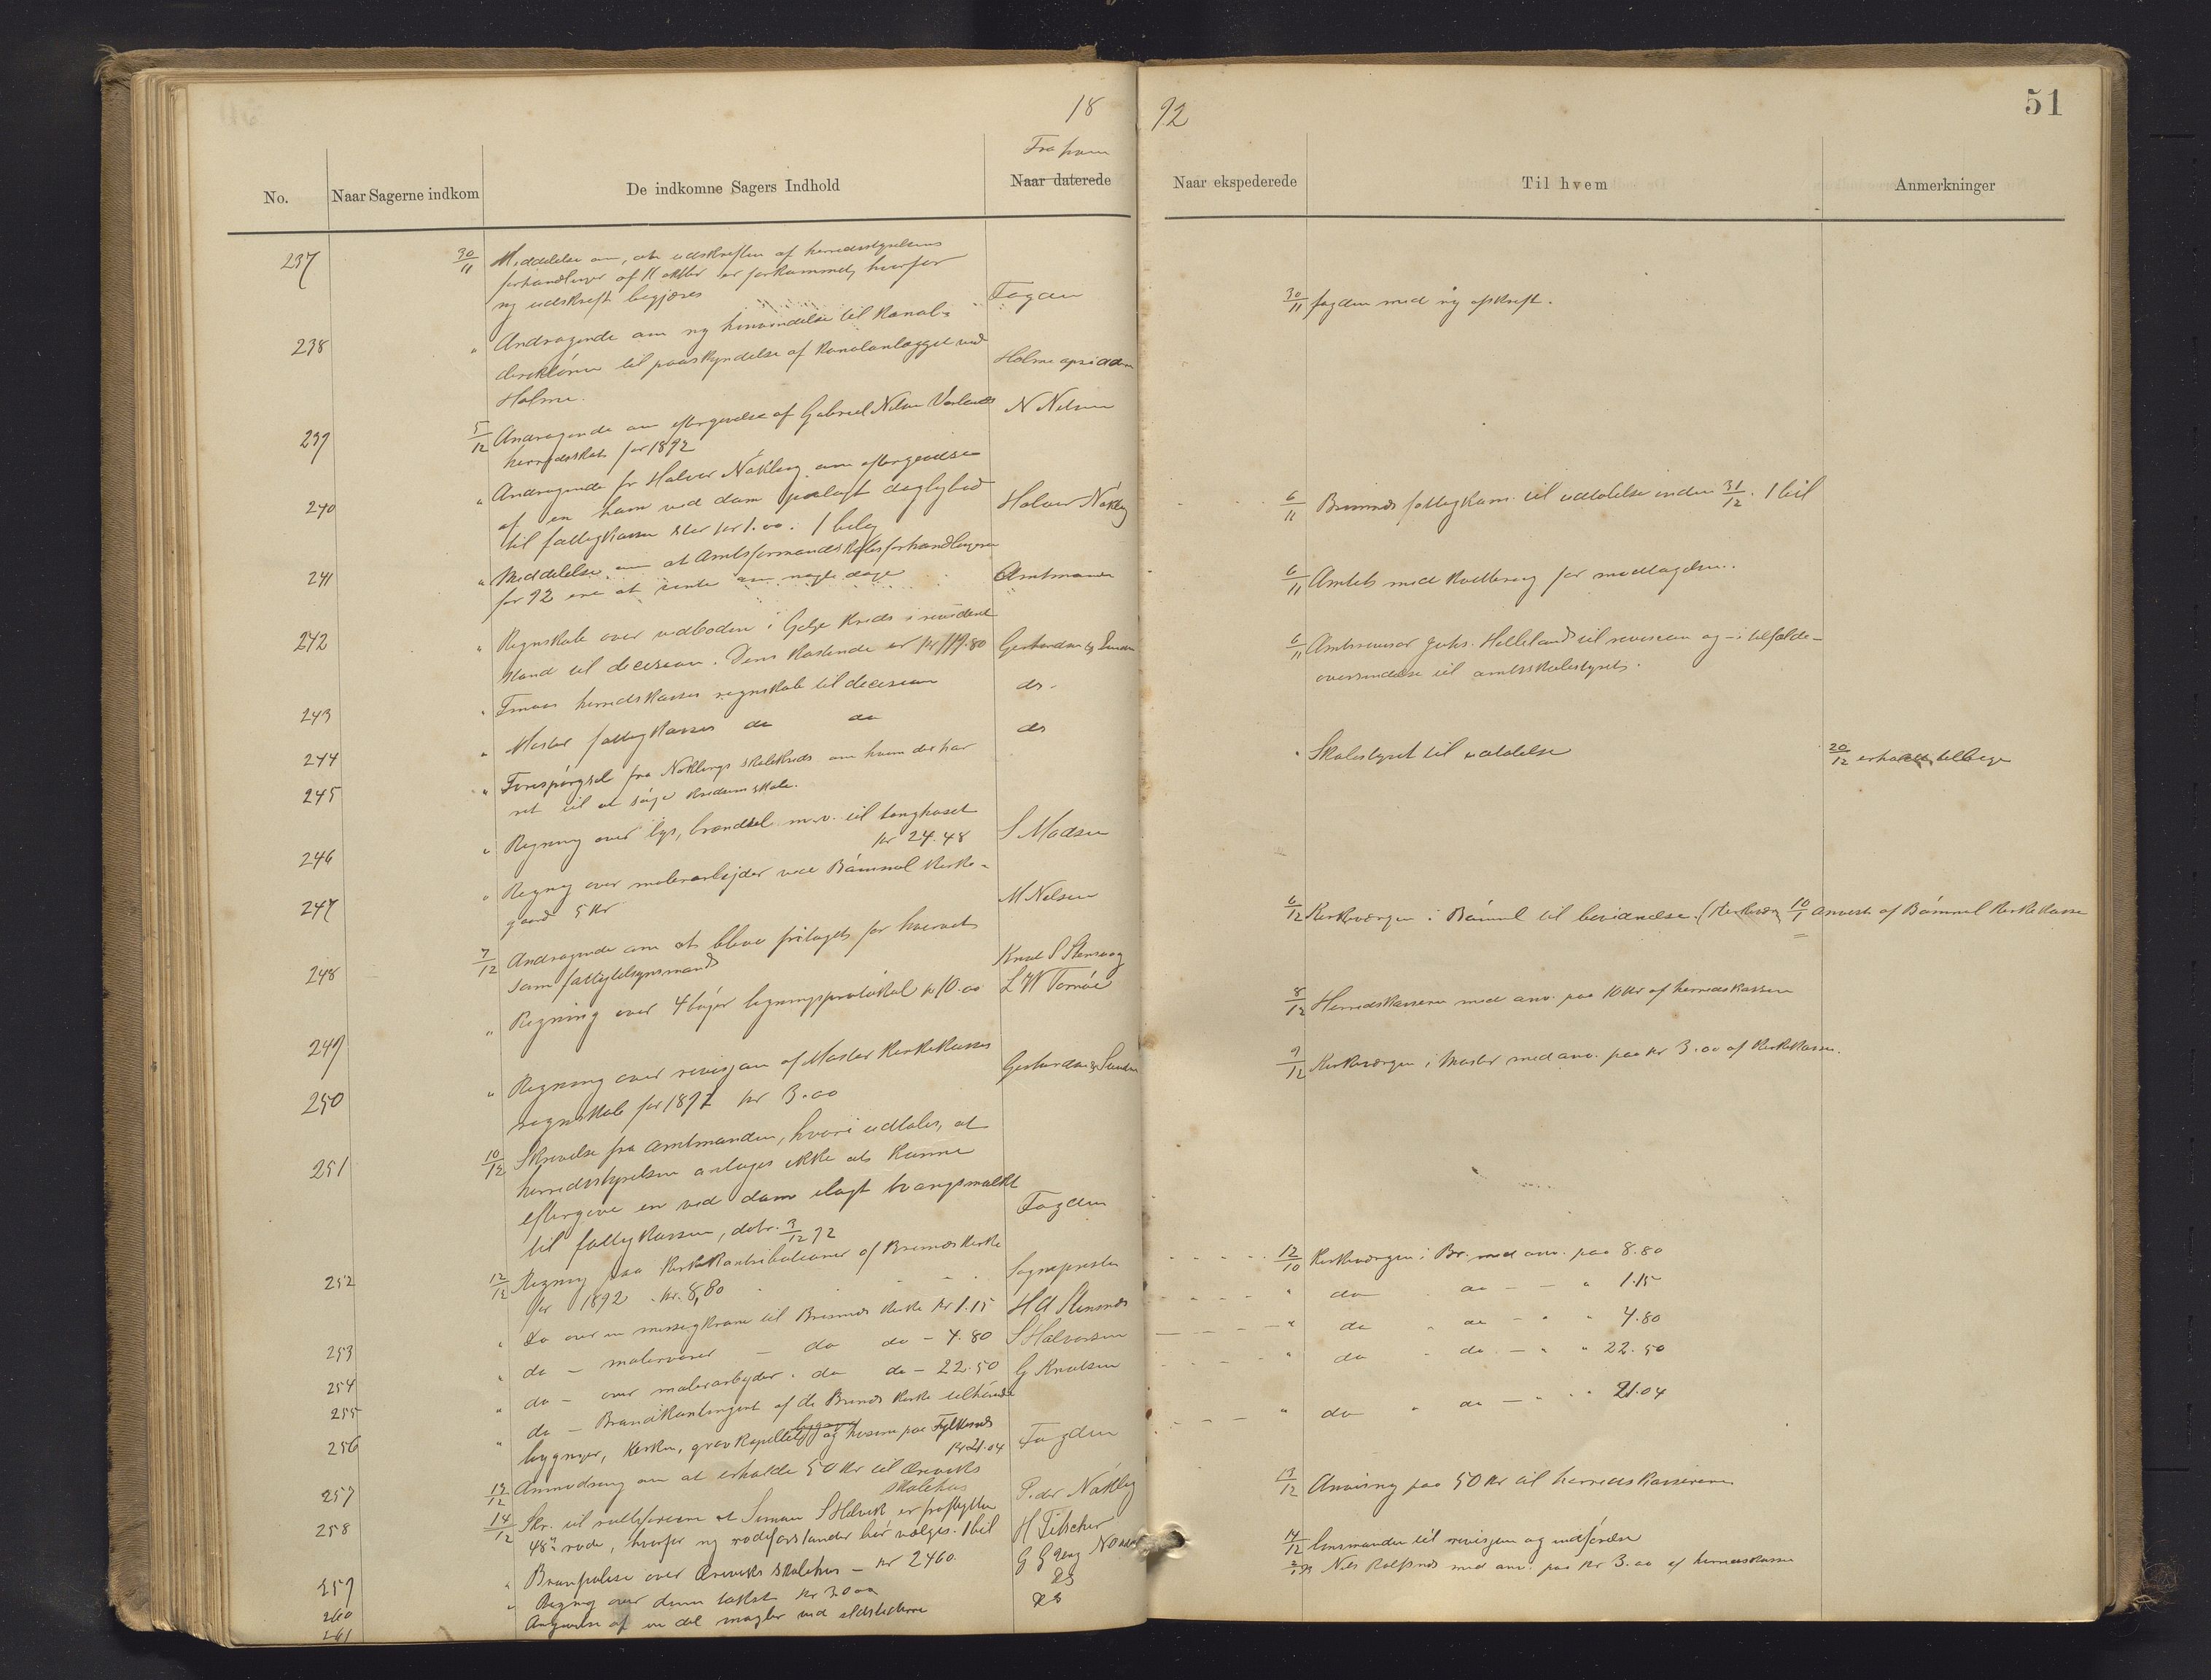 18
92
51
Fra hvem
No.
Naar Sagerne indkom
De indkomne Sagers Indhold
Naar daterede
Naar ekspederede
Til hvem
Anmerkninger
237
30/11 Meddelelse om, at udskriften af herredsstyrelsens
forhandlinger af 11 oktbr er forkommet, hvorfor
ny udskrift begjæres
Fogden
30/11 fogden med ny afskrift.
238
" Andragende om ny henvendelse til Kanal-
direktören til paaskyndelse af Kanalanlægget ved
Holme.
Holme opsidden
239
5/12 Andragende om eftergivelse af Gabriel Nilsen Vorlands
herredsskat for 1892
N Nilsen
240
" Andragende fr Halvor Nökling om eftergivelse
af en ham ved dom paalagt dagbod
til fattigkassen stor kr 1.00. 1 bilag
Halvor Nökling
6/11 Bremnes fattigkom. til udtalelse inden 31/12. 1 bil
241
" Meddelelse om at Amtsformandskabsforhandlingerne
for 92 ere at vente om nogle dage
Amtmanden
6/11 Amtets med kvittering for modtagelsen.
242
" Regnskab over vedboden i kreds i revideret
stand til decision. Dens kostende er kr 119.80
6/11 Amtsrevisor Johs. Helleland til revision og - i tilfælde -
oversendelse til amtsskolestyret.
243
" Finnaas herredskasses regnskab til decision
do.
244
" Moster fattigkasses do do
do
245
" Forespörgsel fra Nöklings skolekreds om hvem der har
ret til at söge kredsens skole.
" Skolestyret til udtalelse
20/12 erholdt tilbage
246
" Regning over lys, brændsel m.v. til tinghuset
kr 24.48
S Madsen
247
" Regning over malerarbeider ved Bömmel Kirke-
gaard 5 kr
M Nilsen
6/12 Kirkeværgen i Bömmel til bevidnelse. 10/1 anvist af Bömmel Kirkekasse
248
7/12 Andragende om at blive fritaget for hvervet
som fattigtilsynsmand
Knut S Stensvag
" Regning over 4 böger ligningsprotokol kr 10.00
L W Tornöe
8/12 Herredskassereren med anv. paa 10 kr af herredskassen
249
" Regning over revisjon af Moster Kirkekasses
regnskab for 1891 kr 3.00
9/12 Kirkeværgen i Moster med anv. paa kr 3.00 af kirkekassen.
250
251
10/12 Skrivelse fra amtmanden, hvori udtales, at
herredsstyrelsen antages ikke at kunne
eftergive en ved dom ilagt tvangsmulkt
til fattigkassen, datr. 3/12 92
Fogden
252
12/12 Regning paa Kirkekontributioner af Bremnes Kirke
for 1892 . kr. 8,80
Sognepresten
12/10 Kirkeværgen i Br. med anv. paa 8.80
253
" Do over en messingkrone til Bremnes Kirke kr 1.15
H A Stensnes
" do do — " 1.15
254
" do - malervarer - do do - 4.80
S Halvorsen
" do " do - " " 4.80
255
" do - over malerarbeyder . do do - 22.50
G Knutsen
" do " do. — " " 22.50
256
" do - Brandkontingent af de Bremnes Kirke tilhörende
bygninger, Kirken, gravkapellet og husene paa
kr 21.04
Fogden
" do " do — " " 21.04
257
13/12 Anmodning om at erholde 50 kr til Ereviks
skolehus
Peder Nökling
13/12 Anvisning paa 50 kr til herredskassereren
258
14/12 Skr. til rulleföreren at Simon S Hilvik er fraflyttet
48de rode, hvorfor ny rodeforstander bör vælges. 1 bil
H Fitscher
14/12 Lensmanden til revisjon og indförelse
259
" Branpolise over Ereviks skolehus - kr 2460.
260
" Regning over denne takst kr 3.00
do
2/1 93 Nils med anv. paa kr 3.00 af herredskassen
261
Angivelse af en del mangler ved ildstederne
do